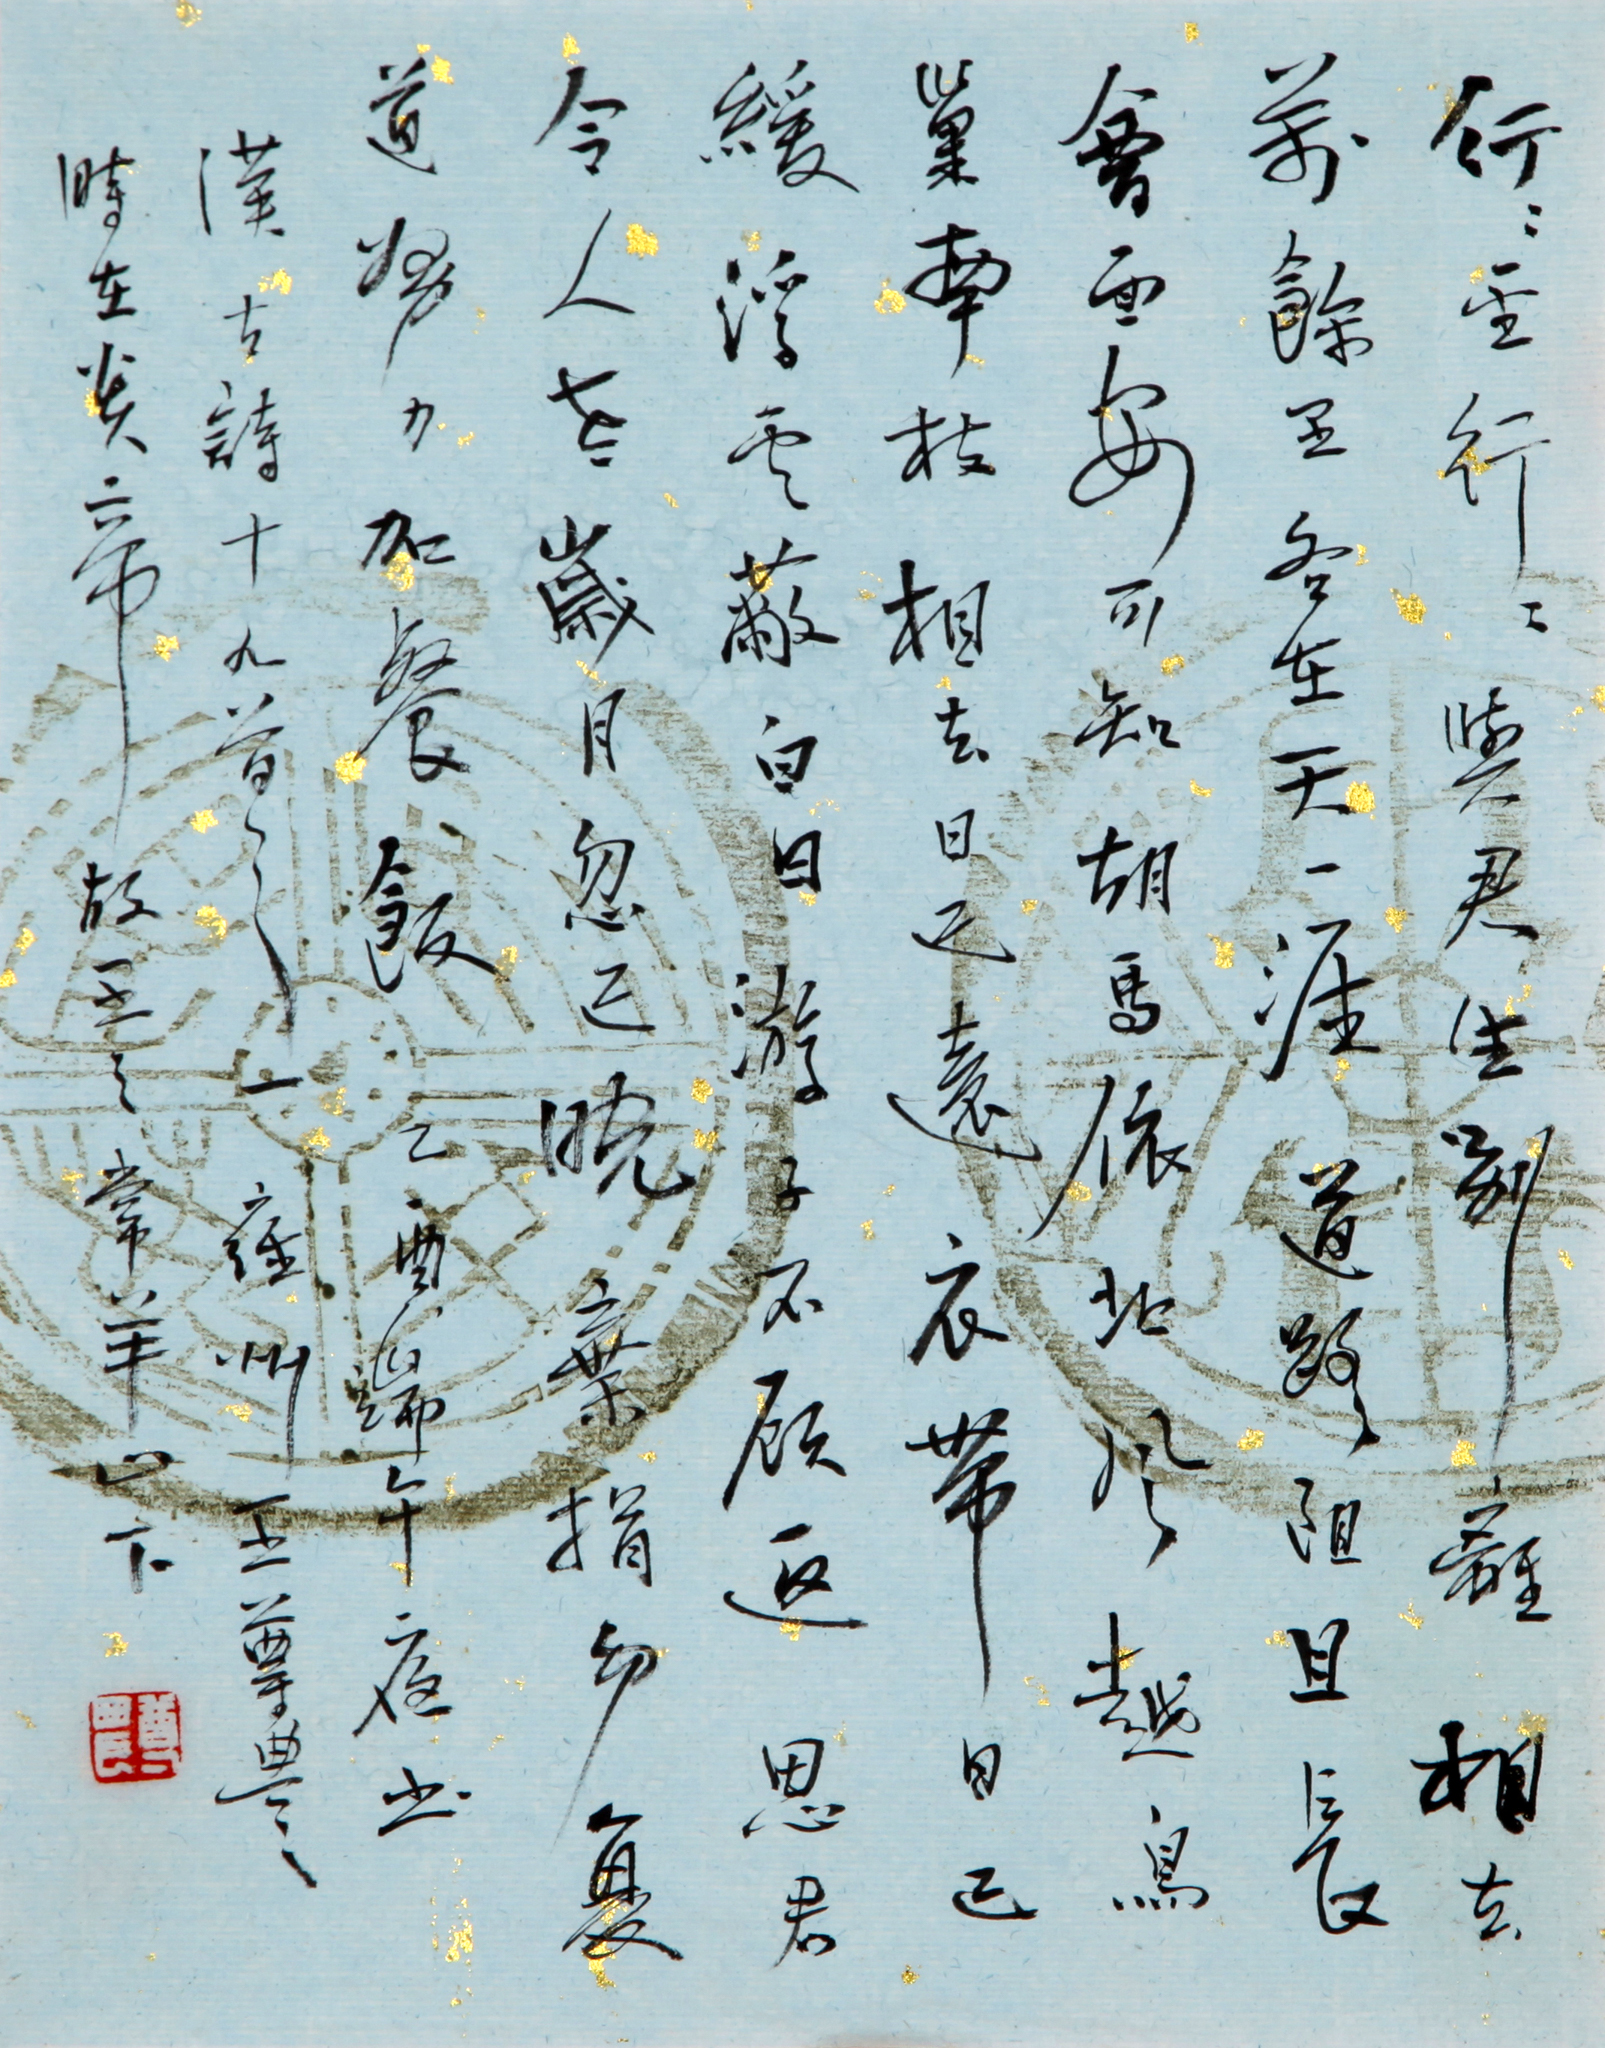 行〻重行〻與君生別離相去
萬餘里各在天一涯道路阻且長
會面安可知胡馬依北風越鳥
巢南枝相去日已遠衣帶日已
緩浮雲蔽白日游子不顧返思君
令人老歲月忽已晚棄捐勿復
道努力加餐飯乙酉端午夜書
漢古詩十九首之一雍州王尊農
時在炎帝故里之常羊山下